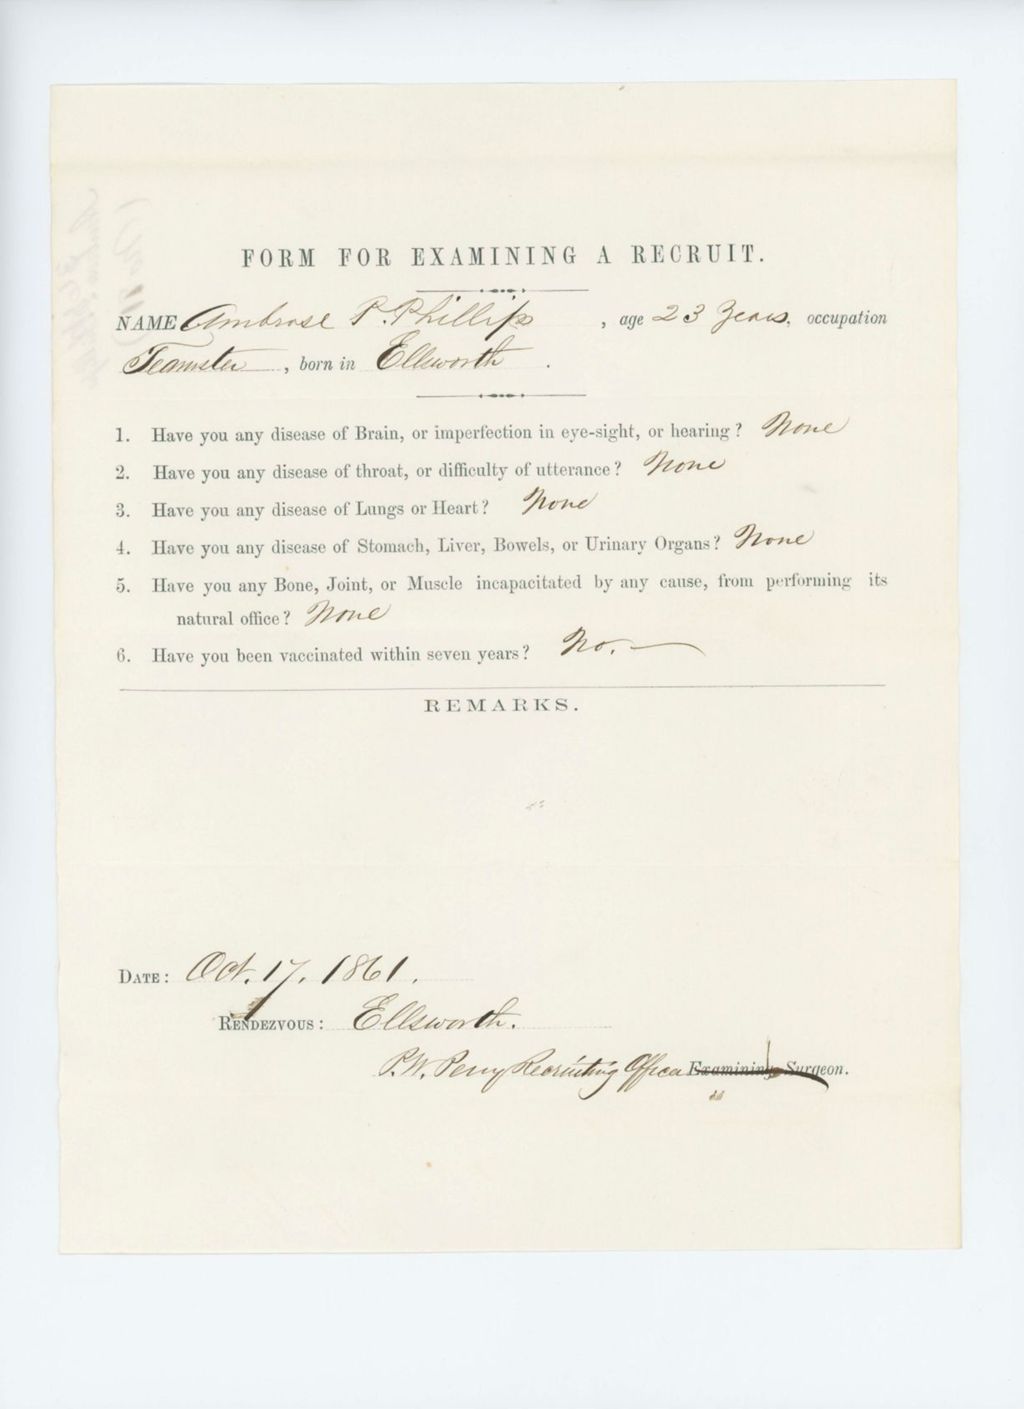 FORM FOR EXAMINING A RECRUIT.
NAME Ambrose P. Phillips, age 23 Years, occupation
Teamster, born in Ellsworth.
1. Have you any disease of Brain, or imperfection in eye-sight, or hearing? None
2. Have you any disease of throat, or difficulty of utterance? None
3. Have you any disease of Lungs or Heart? None
4. Have you any disease of Stomach, Liver, Bowels, or Urinary Organs? None
5. Have you any Bone, Joint, or Muscle incapacitated by any cause, from performing its
natural office? None
6. Have you been vaccinated within seven years? No.
REMARKS.
DATE: Oct. 17, 1861.
RENDEZVOUS: Ellsworth.
P.W. Perry Recruiting Officer Examining Surgeon.